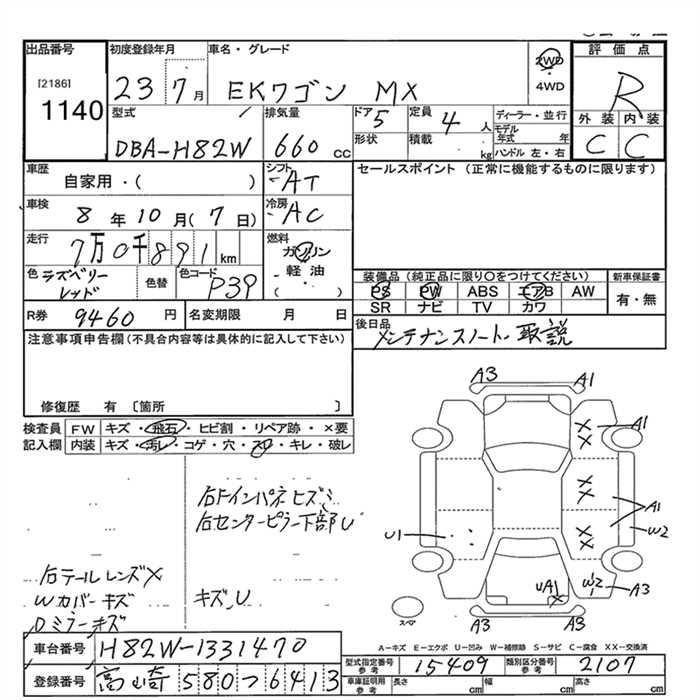 出品番号
[2186]
1140
初度登録年月
23 7月
車名・グレード
EKワゴン MX
2WD
4WD
評価点
R
外装 内装
C C
型式
DBA-H82W
排気量
660 cc
ドア 5
形状
定員 4 人
積載 kg
ディーラー・並行
モデル年式 年
ハンドル 左・右
車歴
自家用・( )
シフト AT
セールスポイント (正常に機能するものに限ります)
車検
8年10月(7日)
冷房 AC
走行
7万0千891km
燃料
ガソリン
軽油
( )
色 ラズベリーレッド
色替
色コード P39
装備品(純正品に限り○をつけてください)
PS PW ABS エアB AW
SR ナビ TV カワ
新車保証書
有・無
R券 9460 円
名変期限 月 日
後日品
メンテナンスノート、取説
注意事項申告欄(不具合内容等は具体的に記入して下さい)
修復歴 有 〔箇所 〕
検査員
記入欄
FW キズ・飛石・ヒビ割・リペア跡・×要
内装 キズ・汚レ・コゲ・穴・スレ・キレ・破レ
右Fインパネヒズミ
右センターピラー下部U
右テールレンズX
Wカバーキズ
キズ、U
Dミラーキズ
A3 A1
X
X
A1
X
X
A1
U1
X
X
W2
UA1
X
W2
A3
スペア
A3 A1
A-キズ E-エクボ U-凹み W-補修跡 S-サビ C-腐食 XX-交換済
車台番号 H82W-1331470
登録番号 高崎 580っ6413
型式指定番号
参考
15409
類別区分番号
参考
2107
車庫証明用
参考
長さ cm
幅 cm
高さ cm